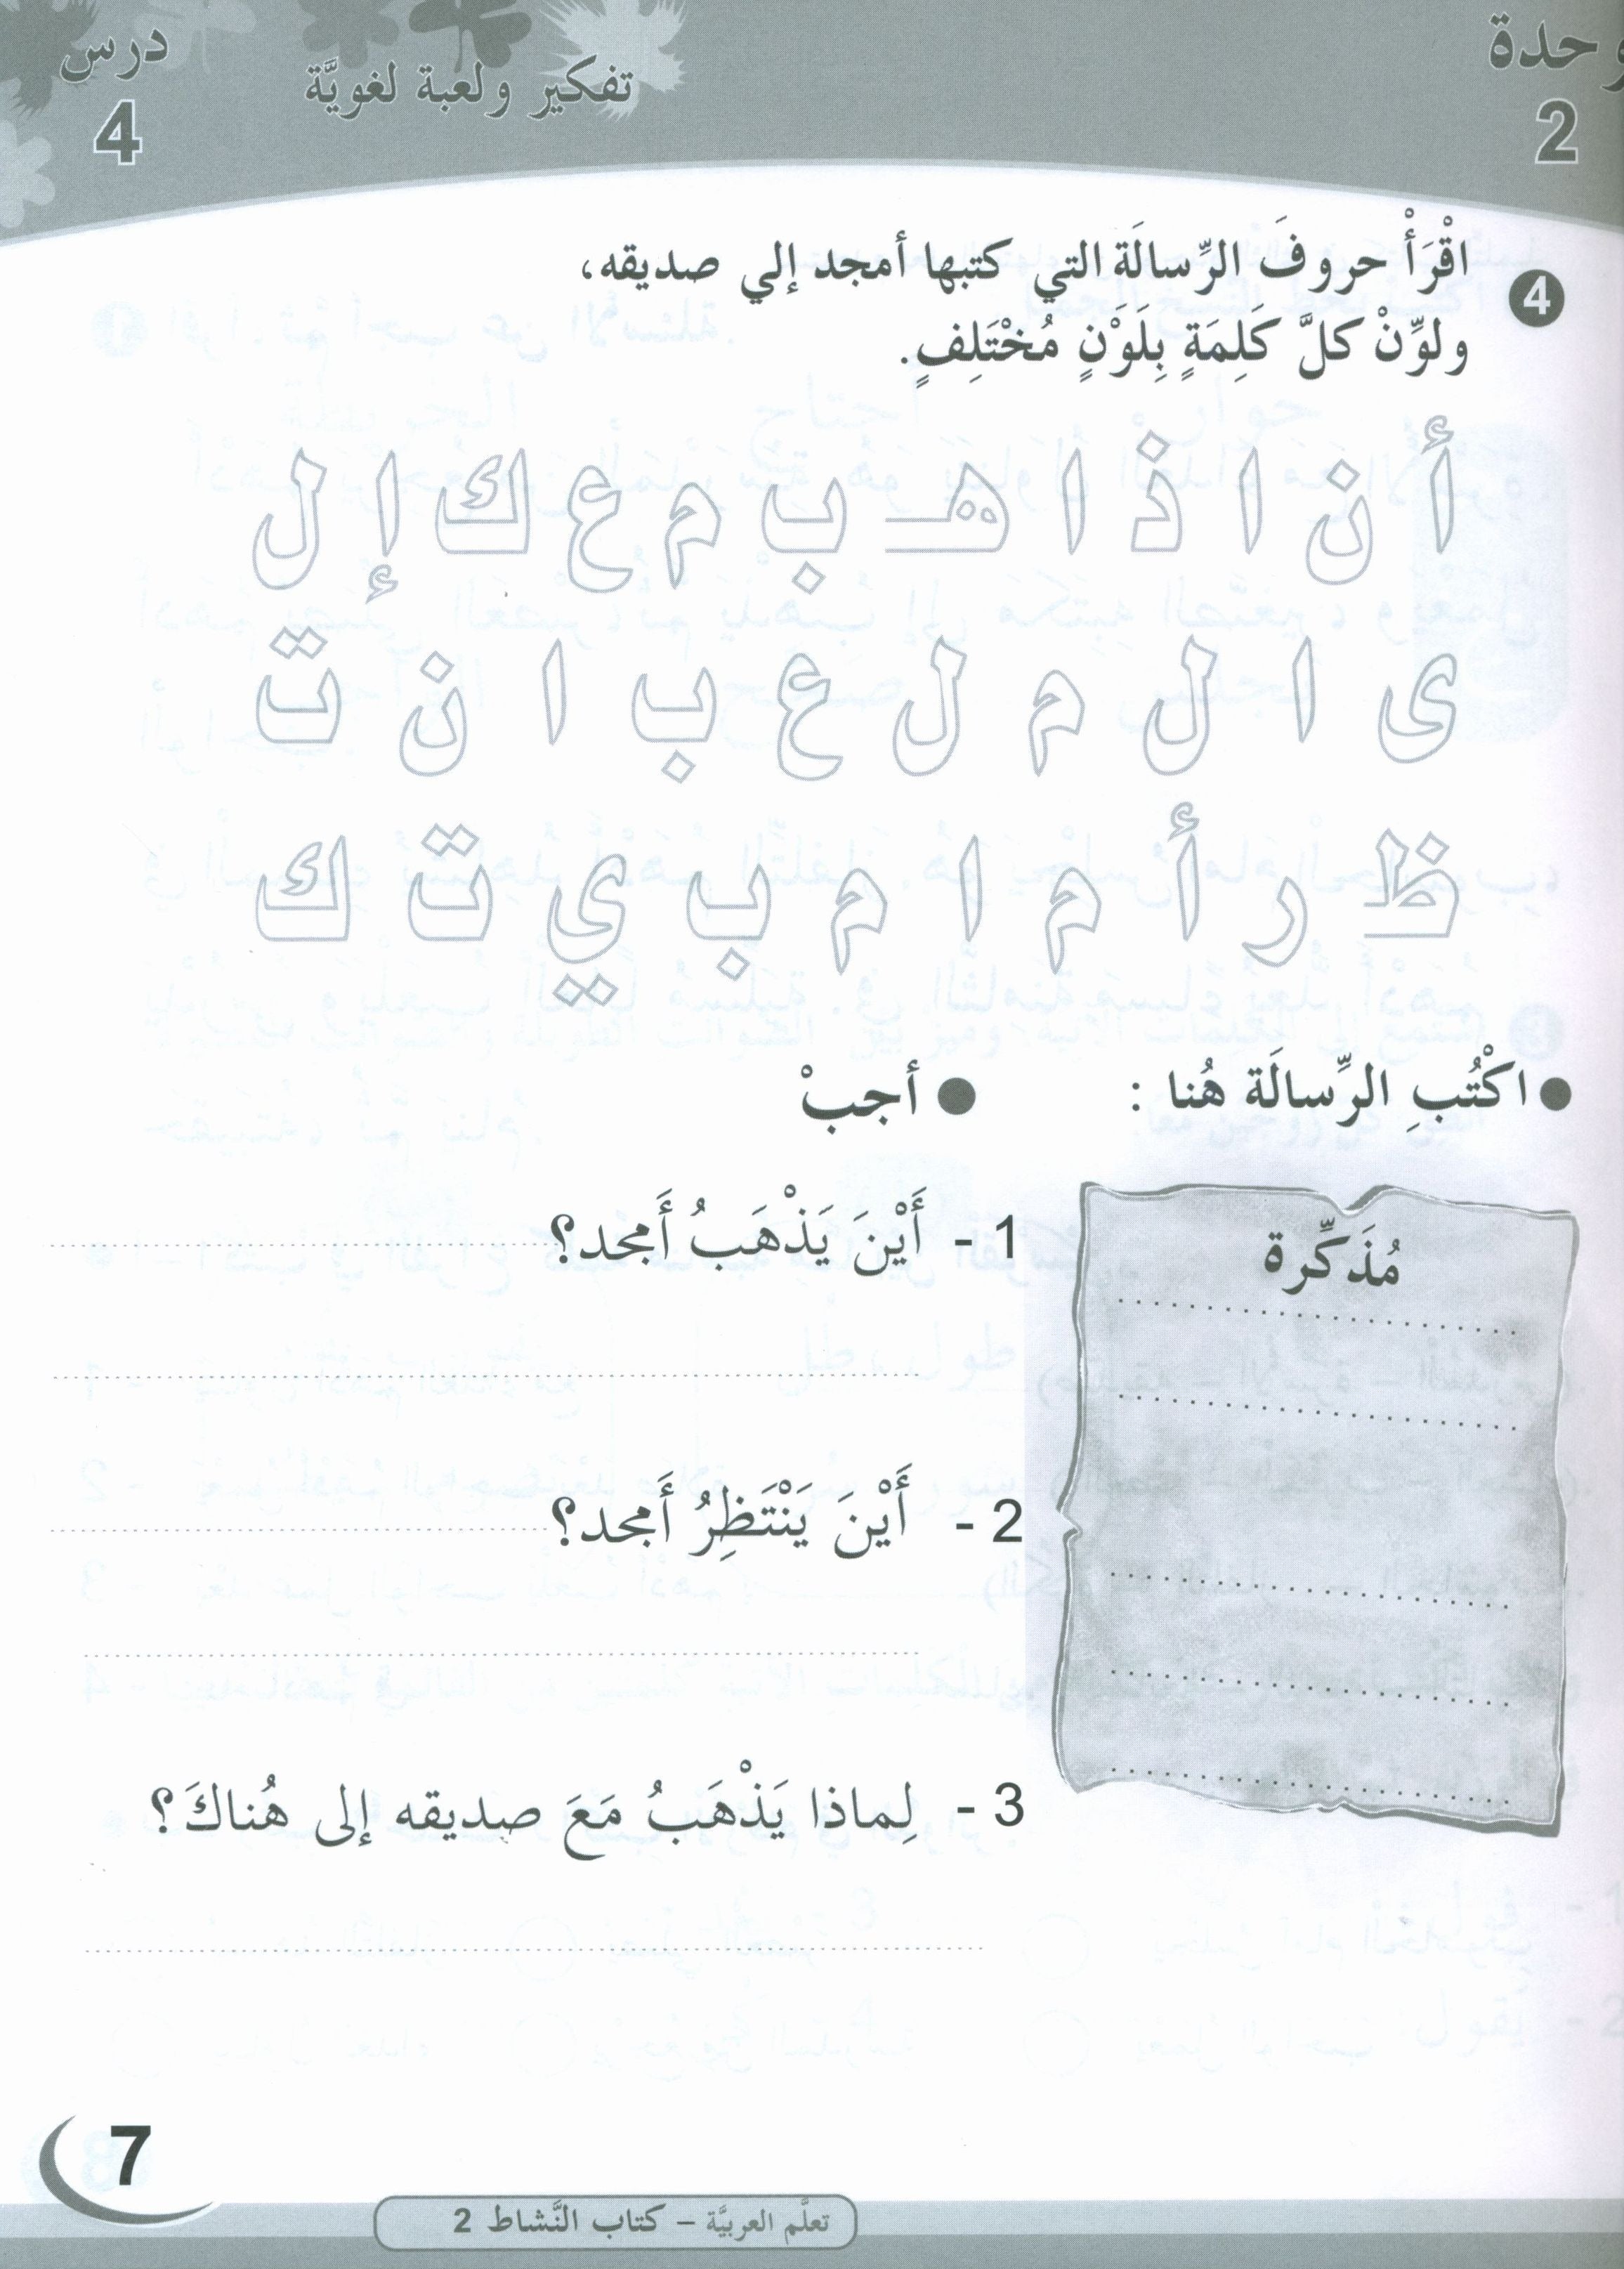 وحدة
2
تفكير ولعبة لغويَّة
درس
4
4 اقْرَأْ حروفَ الرِّسالَة التي كتبها أمجد إلي صديقه،
ولوِّنْ كلَّ كَلِمَةٍ بِلَوْنٍ مُخْتَلِفٍ.
أ ن ا ذ ا هـ ب م ع ك إ ل
ى ا ل م ل ع ب ا ن ت
ظ ر أ م ا م ب ي ت ك
● اكْتُبِ الرِّسالَة هُنا :
مُذَكِّرة
● أجبْ
1 - أَيْنَ يَذْهَبُ أَمجد؟
2 - أَيْنَ يَنْتَظِرُ أَمجد؟
3 - لِماذا يَذْهَبُ مَعَ صديقه إلى هُناكَ؟
7
تعلَّم العربيَّة – كتاب النَّشاط 2